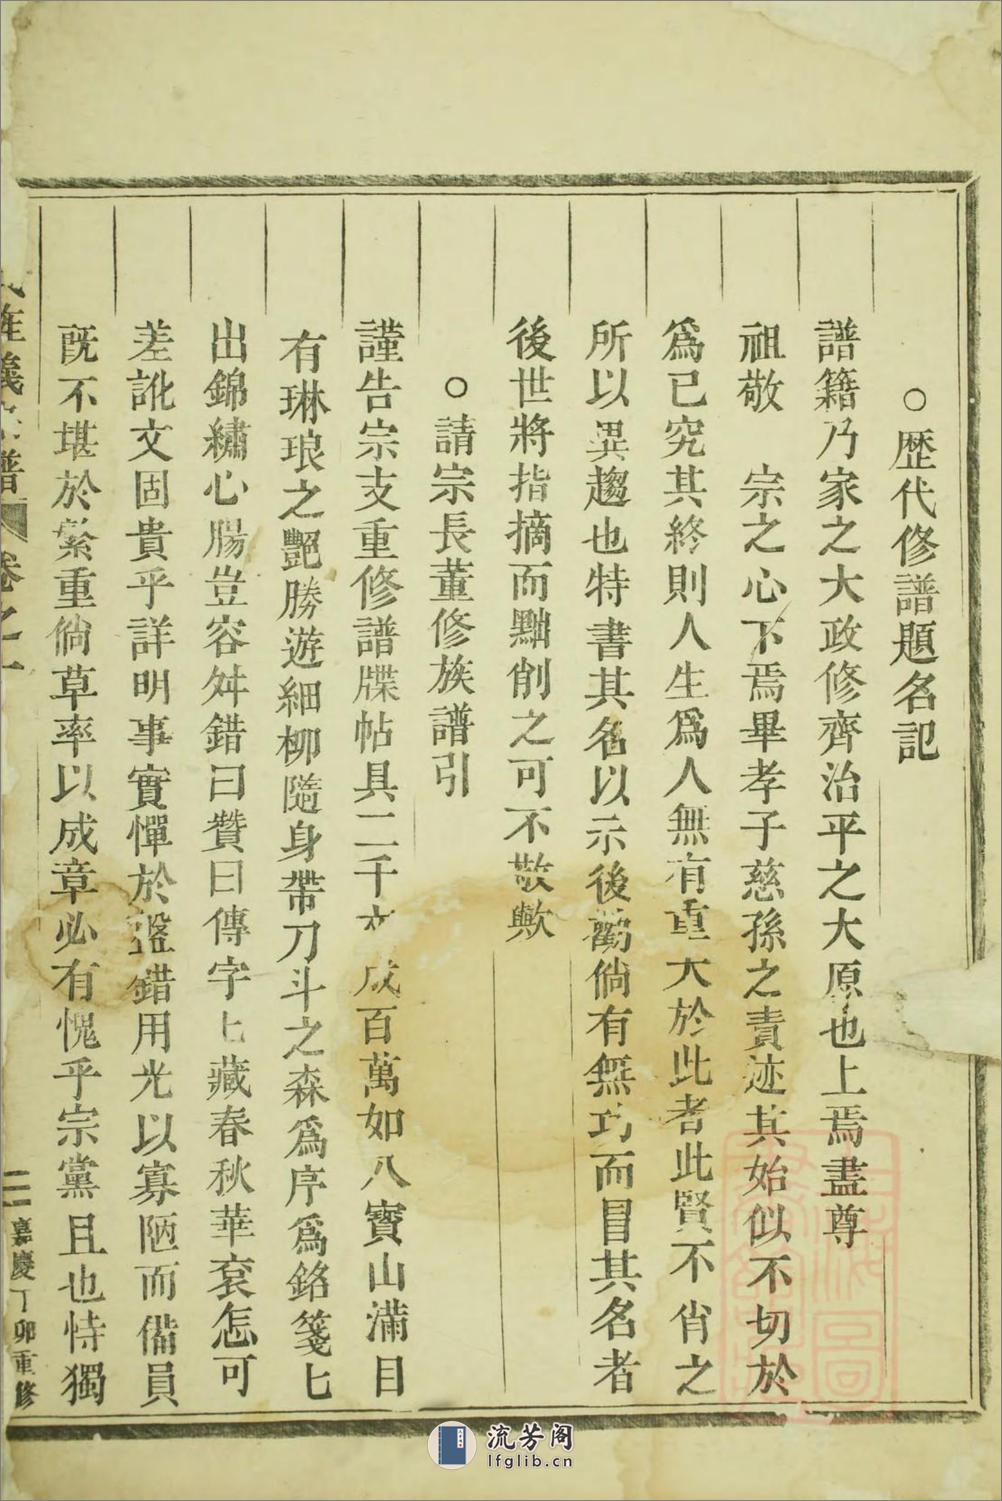 ○歷代修譜題名記
譜籍乃家之大政修齊治平之大原也上焉盡尊
祖敬　宗之心下焉畢孝子慈孫之責迹其始似不切於
爲已究其終則人生爲人無有重大於此者此賢不肖之
所以異趨也特書其名以示後勸倘有無巧而冒其名者
後世將指摘而黜削之可不敬歟
○請宗長董修族譜引
謹告宗支重修譜牒帖具二千　成百萬如入寶山滿目
有琳琅之艷勝遊細柳隨身帶刀斗之森爲序爲銘箋匕
出錦繡心腸豈容舛錯曰贊曰傳字匕藏春秋華袞怎可
差訛文固貴乎詳明事實憚於盤錯用光以寡陋而備員
旣不堪於繁重倘草率以成章必有愧乎宗黨且也恃獨
譜 卷之一
二 嘉慶丁卯重修
流芳阁
lfglib.cn